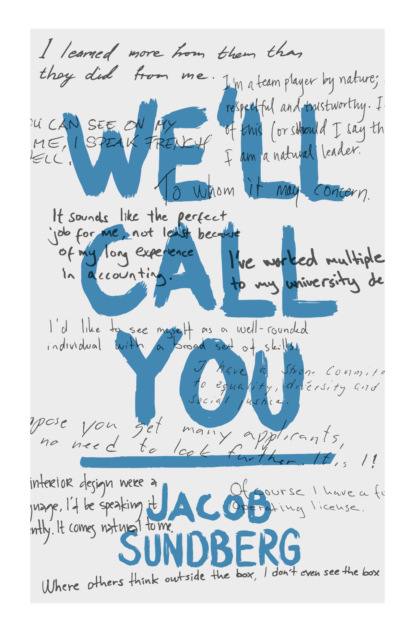 I learned more from them than
they did from me.
I'm a team player by nature;
respectful and trustworthy. I
of this (or should I say th
I am a natural leader.
OU CAN SEE ON MY
ME, I SPEAK FRENCH
ELL!
WE'LL
To whom it may concern.
It sounds like the perfect
job for me, not least because
of my long experience
in accounting.
CALL
I've worked multiple
to my university de
I'd like to see myself as a well-rounded
individual with a broad set of skills.
YOU
I have a commit
to equality, diversity and
social justice.
ppose you get many applicants,
no need to look further. It is I!
interior design were a
nguage, I'd be speaking it
ntly. It comes natural to me.
JACOB
Of course I have a fo
operating license.
SUNDBERG
Where others think outside the box, I don't even see the box